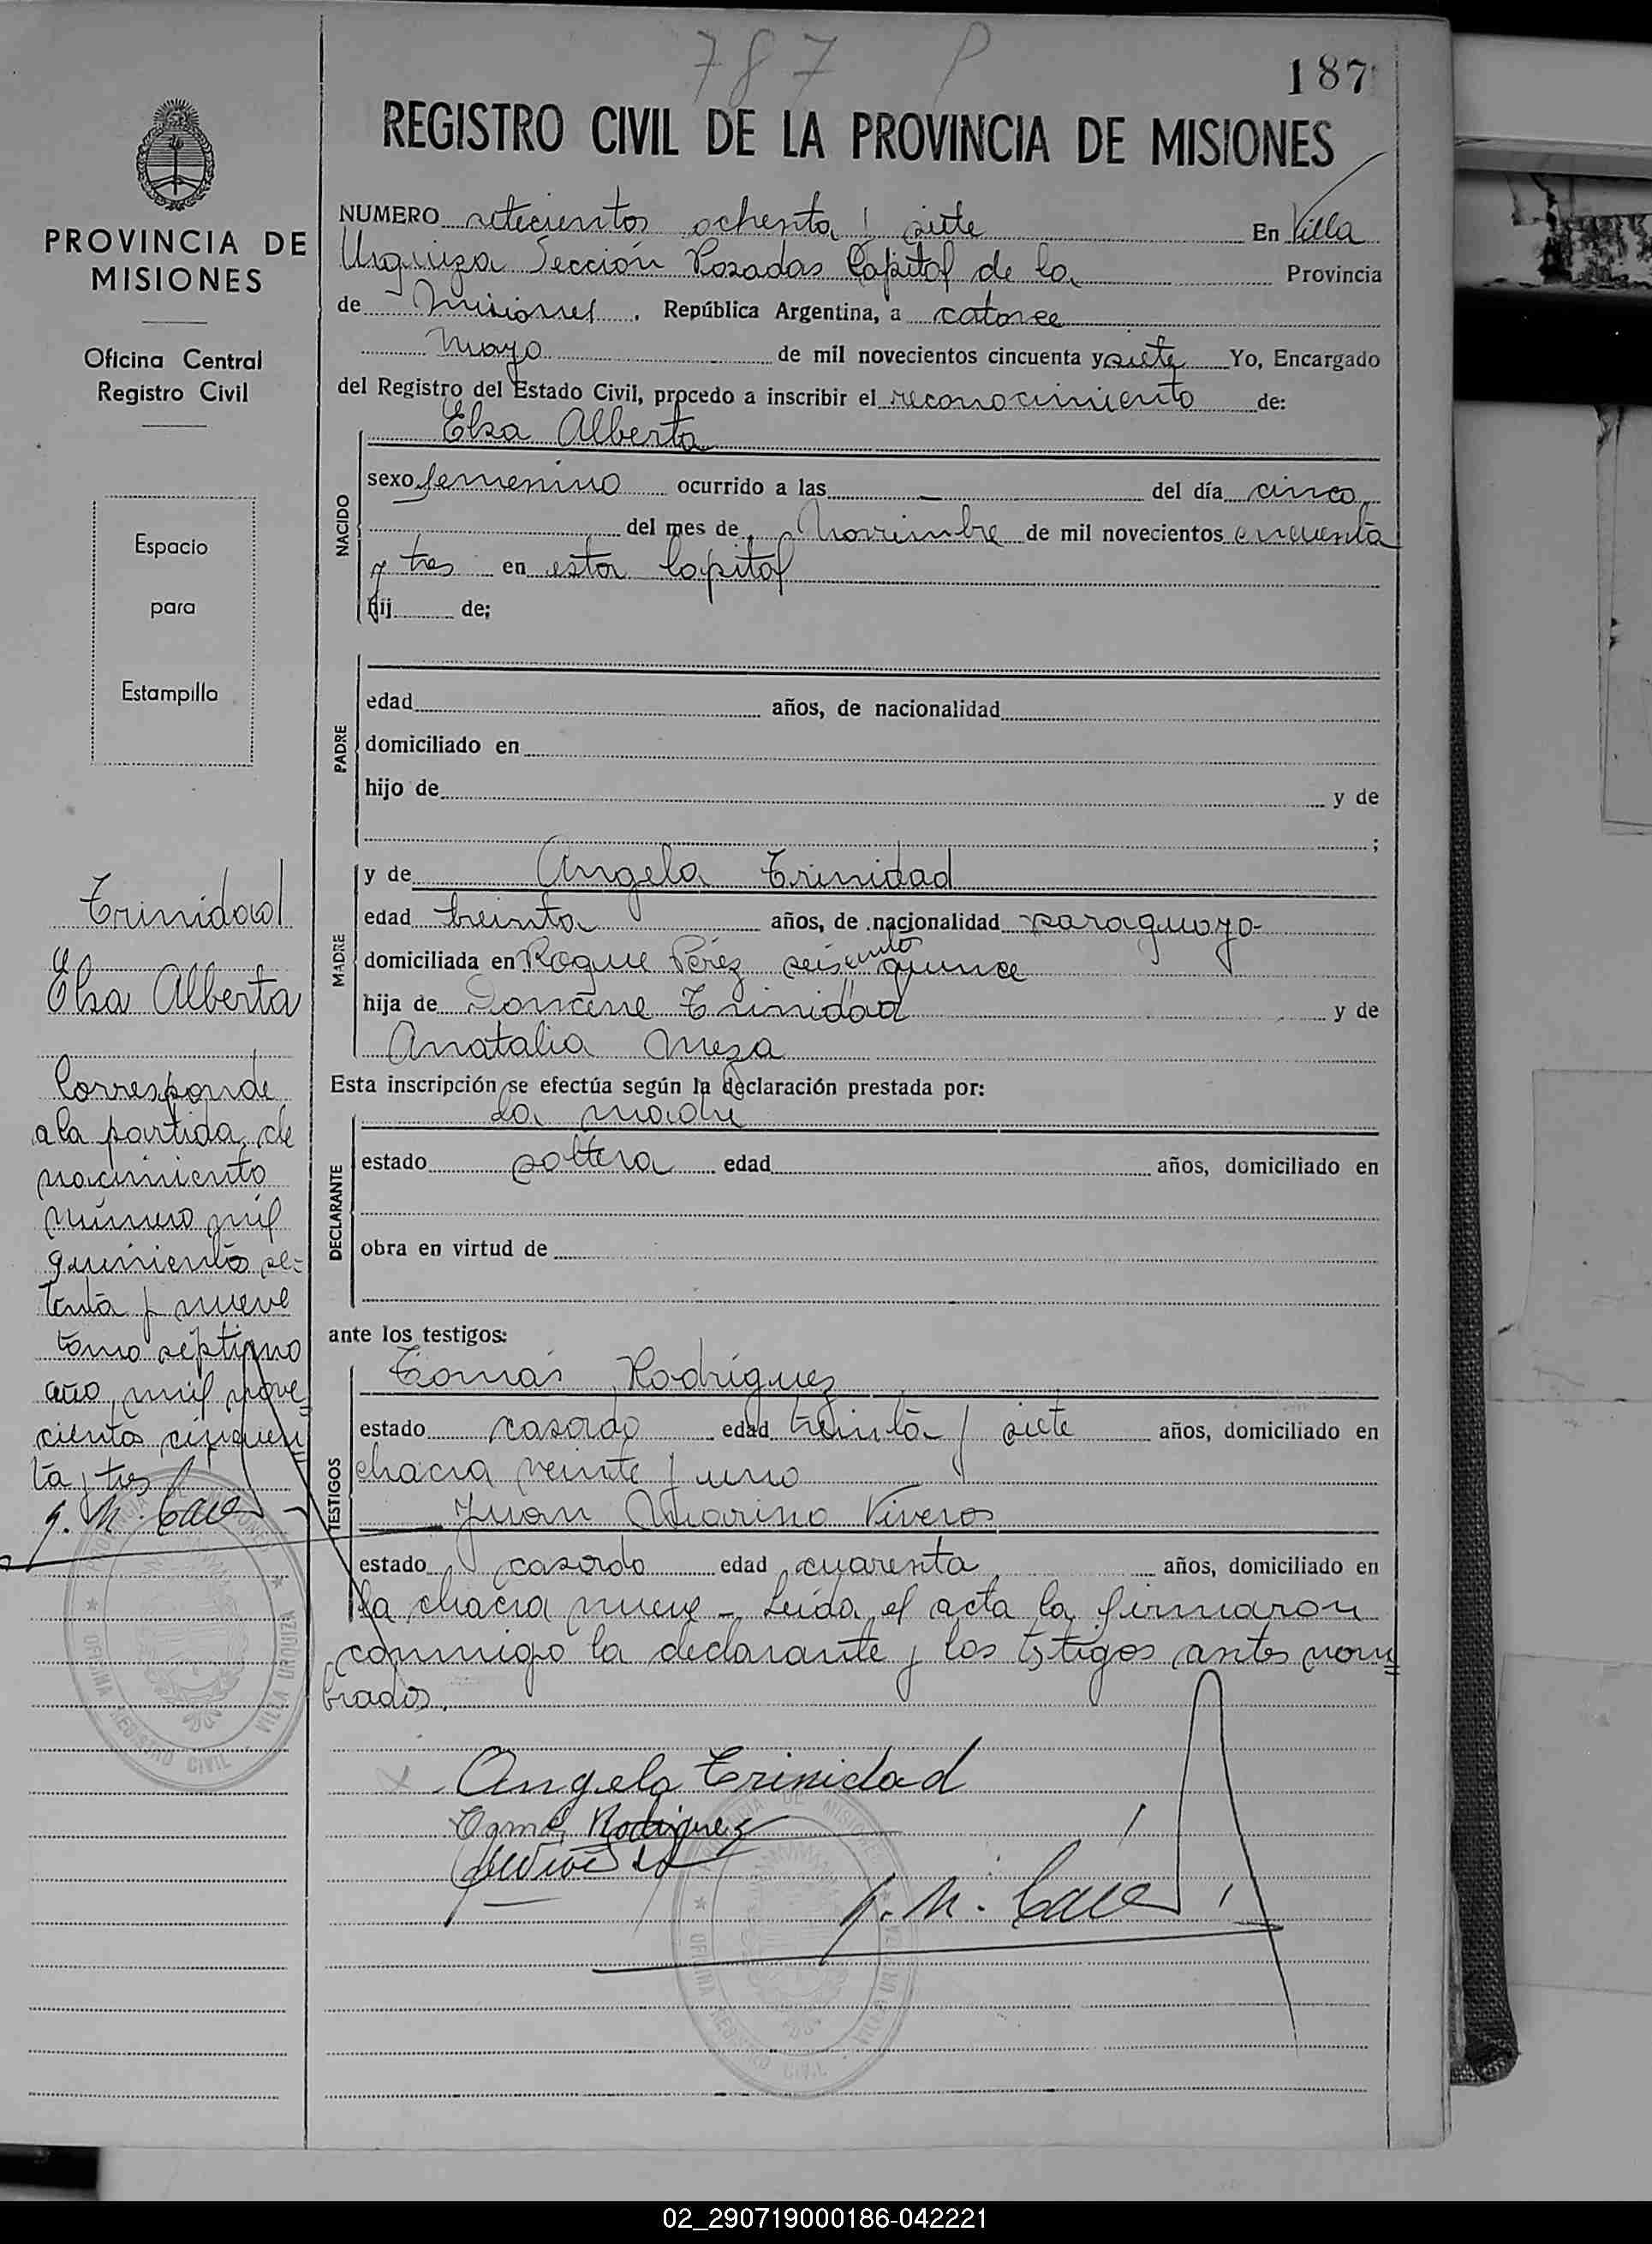 787 P
187
REGISTRO CIVIL DE LA PROVINCIA DE MISIONES
PROVINCIA DE
MISIONES
Oficina Central
Registro Civil
Espacio
para
Estampilla
Trinidad
Elsa Alberta
Corresponde
a la partida de
nacimiento
número mil
quinientos se-
tenta y nueve
tomo séptimo
año mil nove
cientos cincuen
ta y tres
NUMERO setecientos ochenta y siete En Villa
Urquiza Sección Posadas Capital de la Provincia
de Misiones, República Argentina, a catorce
Mayo de mil novecientos cincuenta y siete Yo, Encargado
del Registro del Estado Civil, procedo a inscribir el reconocimiento de:
Elsa Alberta
NACIDO
sexo femenino ocurrido a las — del día cinco
del mes de Noviembre de mil novecientos cincuenta
y tres en esta Capital
hij de;
PADRE
edad años, de nacionalidad
domiciliado en
hijo de y de
;
MADRE
y de Angela Trinidad
edad treinta años, de nacionalidad paraguaya
domiciliada en Roque Pérez seiscientos quince
hija de Trinidad y de
Anatalia Meza
Esta inscripción se efectúa según la declaración prestada por:
la madre
DECLARANTE
estado soltera edad años, domiciliado en
obra en virtud de
ante los testigos:
TESTIGOS
Tomás Rodríguez
estado casado edad treinta y siete años, domiciliado en
chacra veinte y uno
Juan Marino Viveros
estado casado edad cuarenta años, domiciliado en
la chacra nueve - Leída el acta la firmaron
conmigo la declarante y los testigos antes nom
brados.
Angela Trinidad
Tomás Rodriguez
PROVINCIA DE MISIONES
OFICINA REGISTRO CIVIL VILLA URQUIZA
PROVINCIA DE MISIONES
OFICINA REGISTRO CIVIL VILLA URQUIZA
02_290719000186-042221